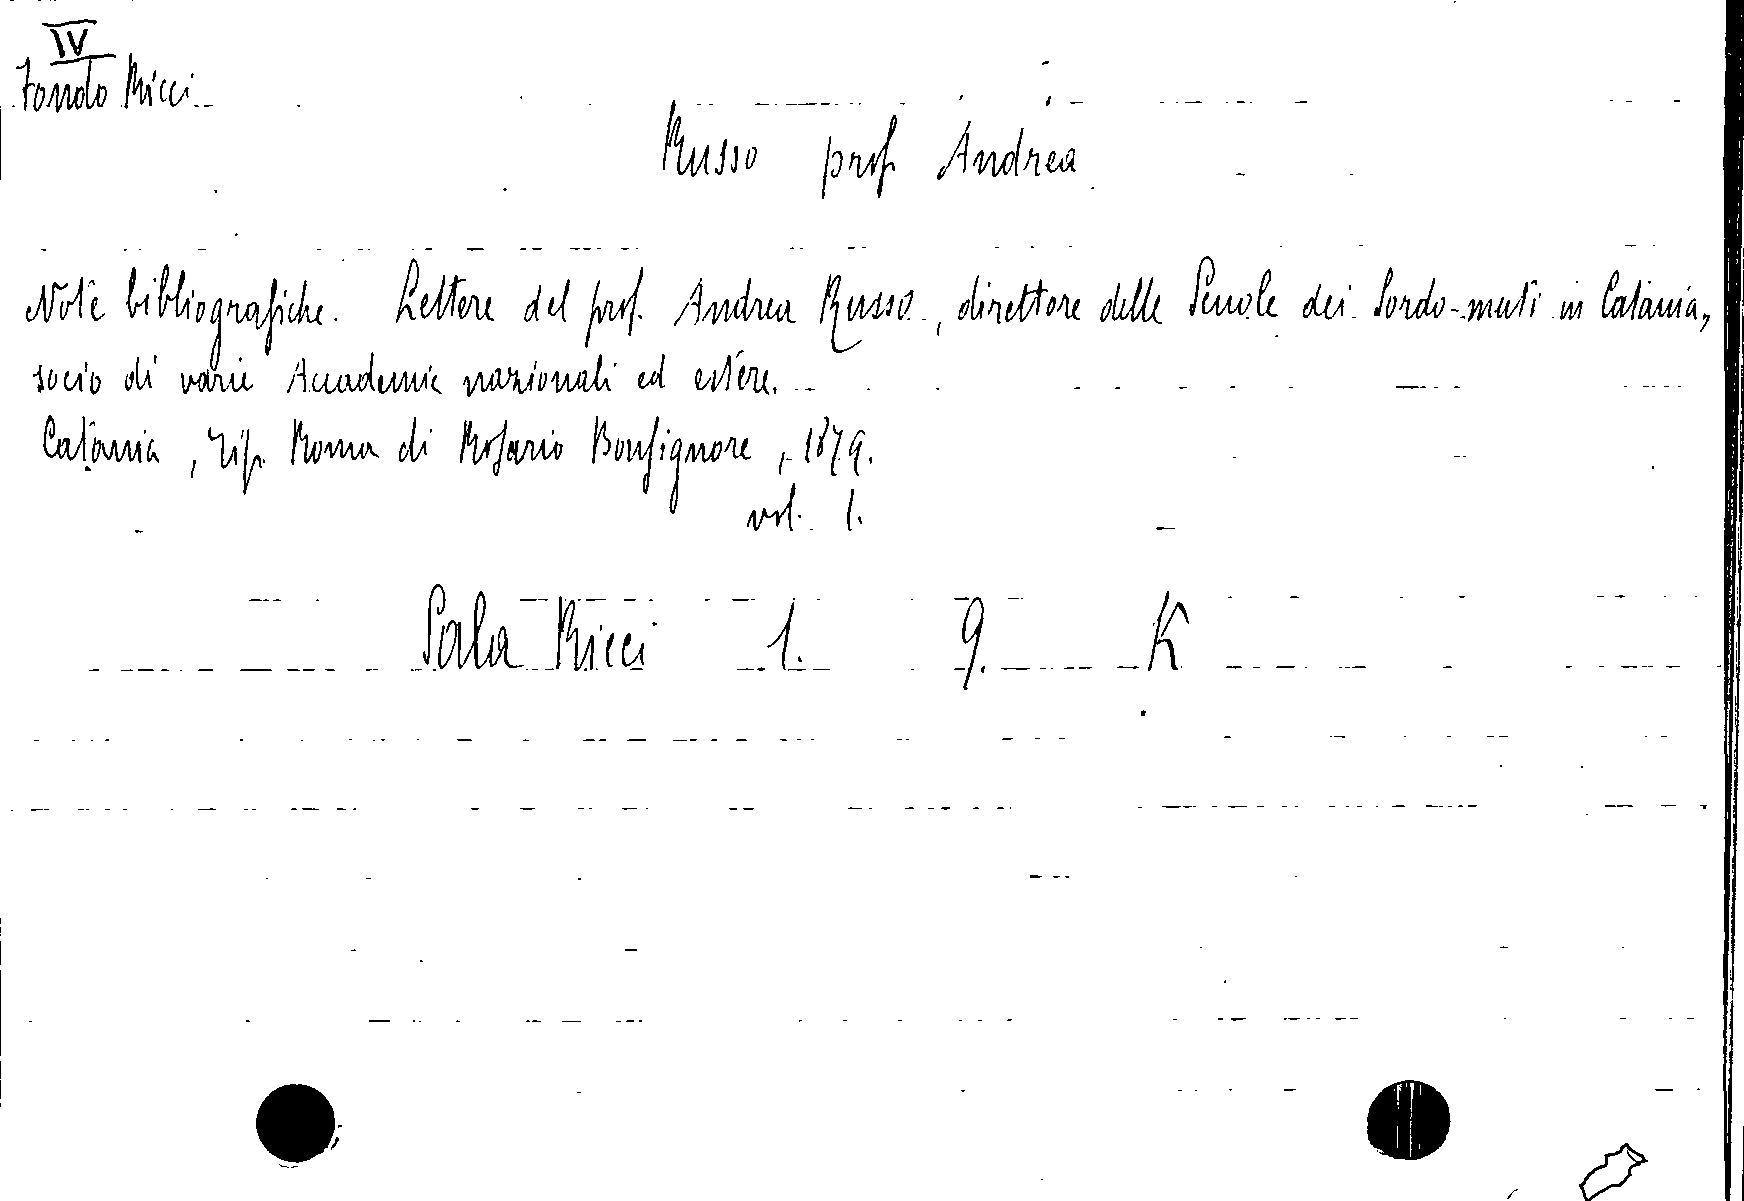 IV
Fondo Ricci
Russo prof. Andrea
Note bibliografiche. Lettere del prof. Andrea Russo, direttore delle Scuole dei Sordo-muti in Catania,
socio di varie Accademie nazionali ed estere.
Catania, Tip. Roma di Rosario Bonsignore, 1879.
vol. 1.
Sala Ricci 1. 9. K